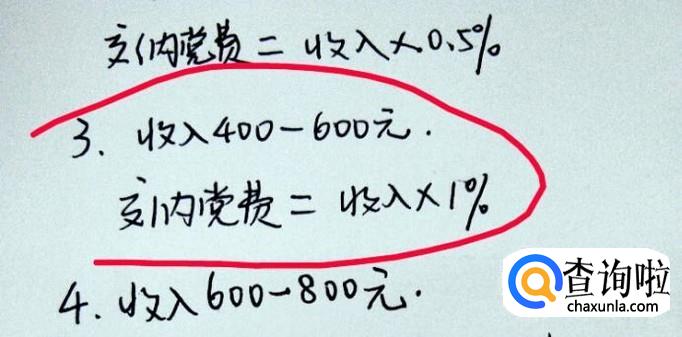 交纳党费 = 收入×0.5%
3. 收入400-600元.
交纳党费 = 收入×1%
4. 收入600-800元.
查询啦
chaxunla.com